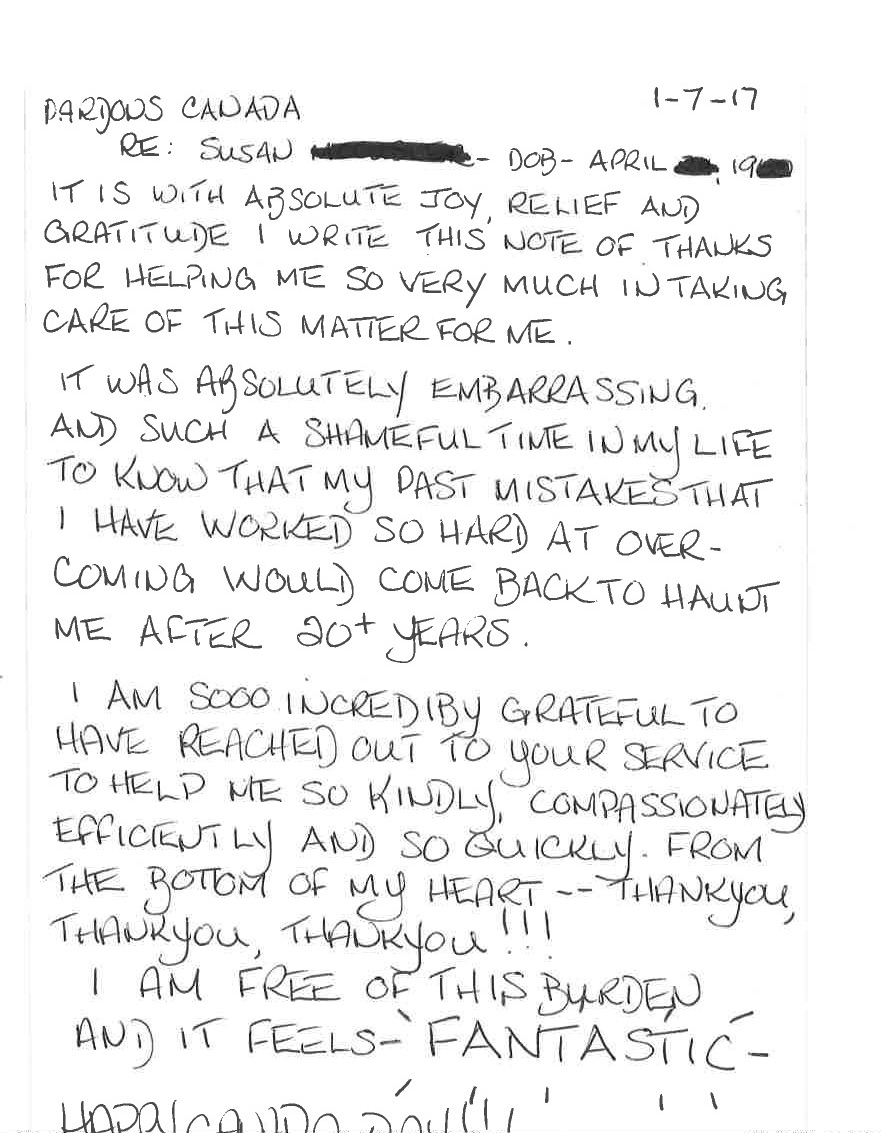 PARDONS CANADA
1-7-17
RE: SUSAN - DOB - APRIL , 19
IT IS WITH ABSOLUTE JOY, RELIEF AND
GRATITUDE I WRITE THIS NOTE OF THANKS
FOR HELPING ME SO VERY MUCH IN TAKING
CARE OF THIS MATTER FOR ME.
IT WAS ABSOLUTELY EMBARRASSING.
AND SUCH A SHAMEFUL TIME IN MY LIFE
TO KNOW THAT MY PAST MISTAKES THAT
I HAVE WORKED SO HARD AT OVER-
COMING WOULD COME BACK TO HAUNT
ME AFTER 20+ YEARS.
I AM SOOO INCREDIBY GRATEFUL TO
HAVE REACHED OUT TO YOUR SERVICE
TO HELP ME SO KINDLY, COMPASSIONATELY
EFFICIENTLY AND SO QUICKLY. FROM
THE BOTTOM OF MY HEART -- THANKYOU,
THANKYOU, THANKYOU!!!
I AM FREE OF THIS BURDEN
AND IT FEELS - FANTASTIC -